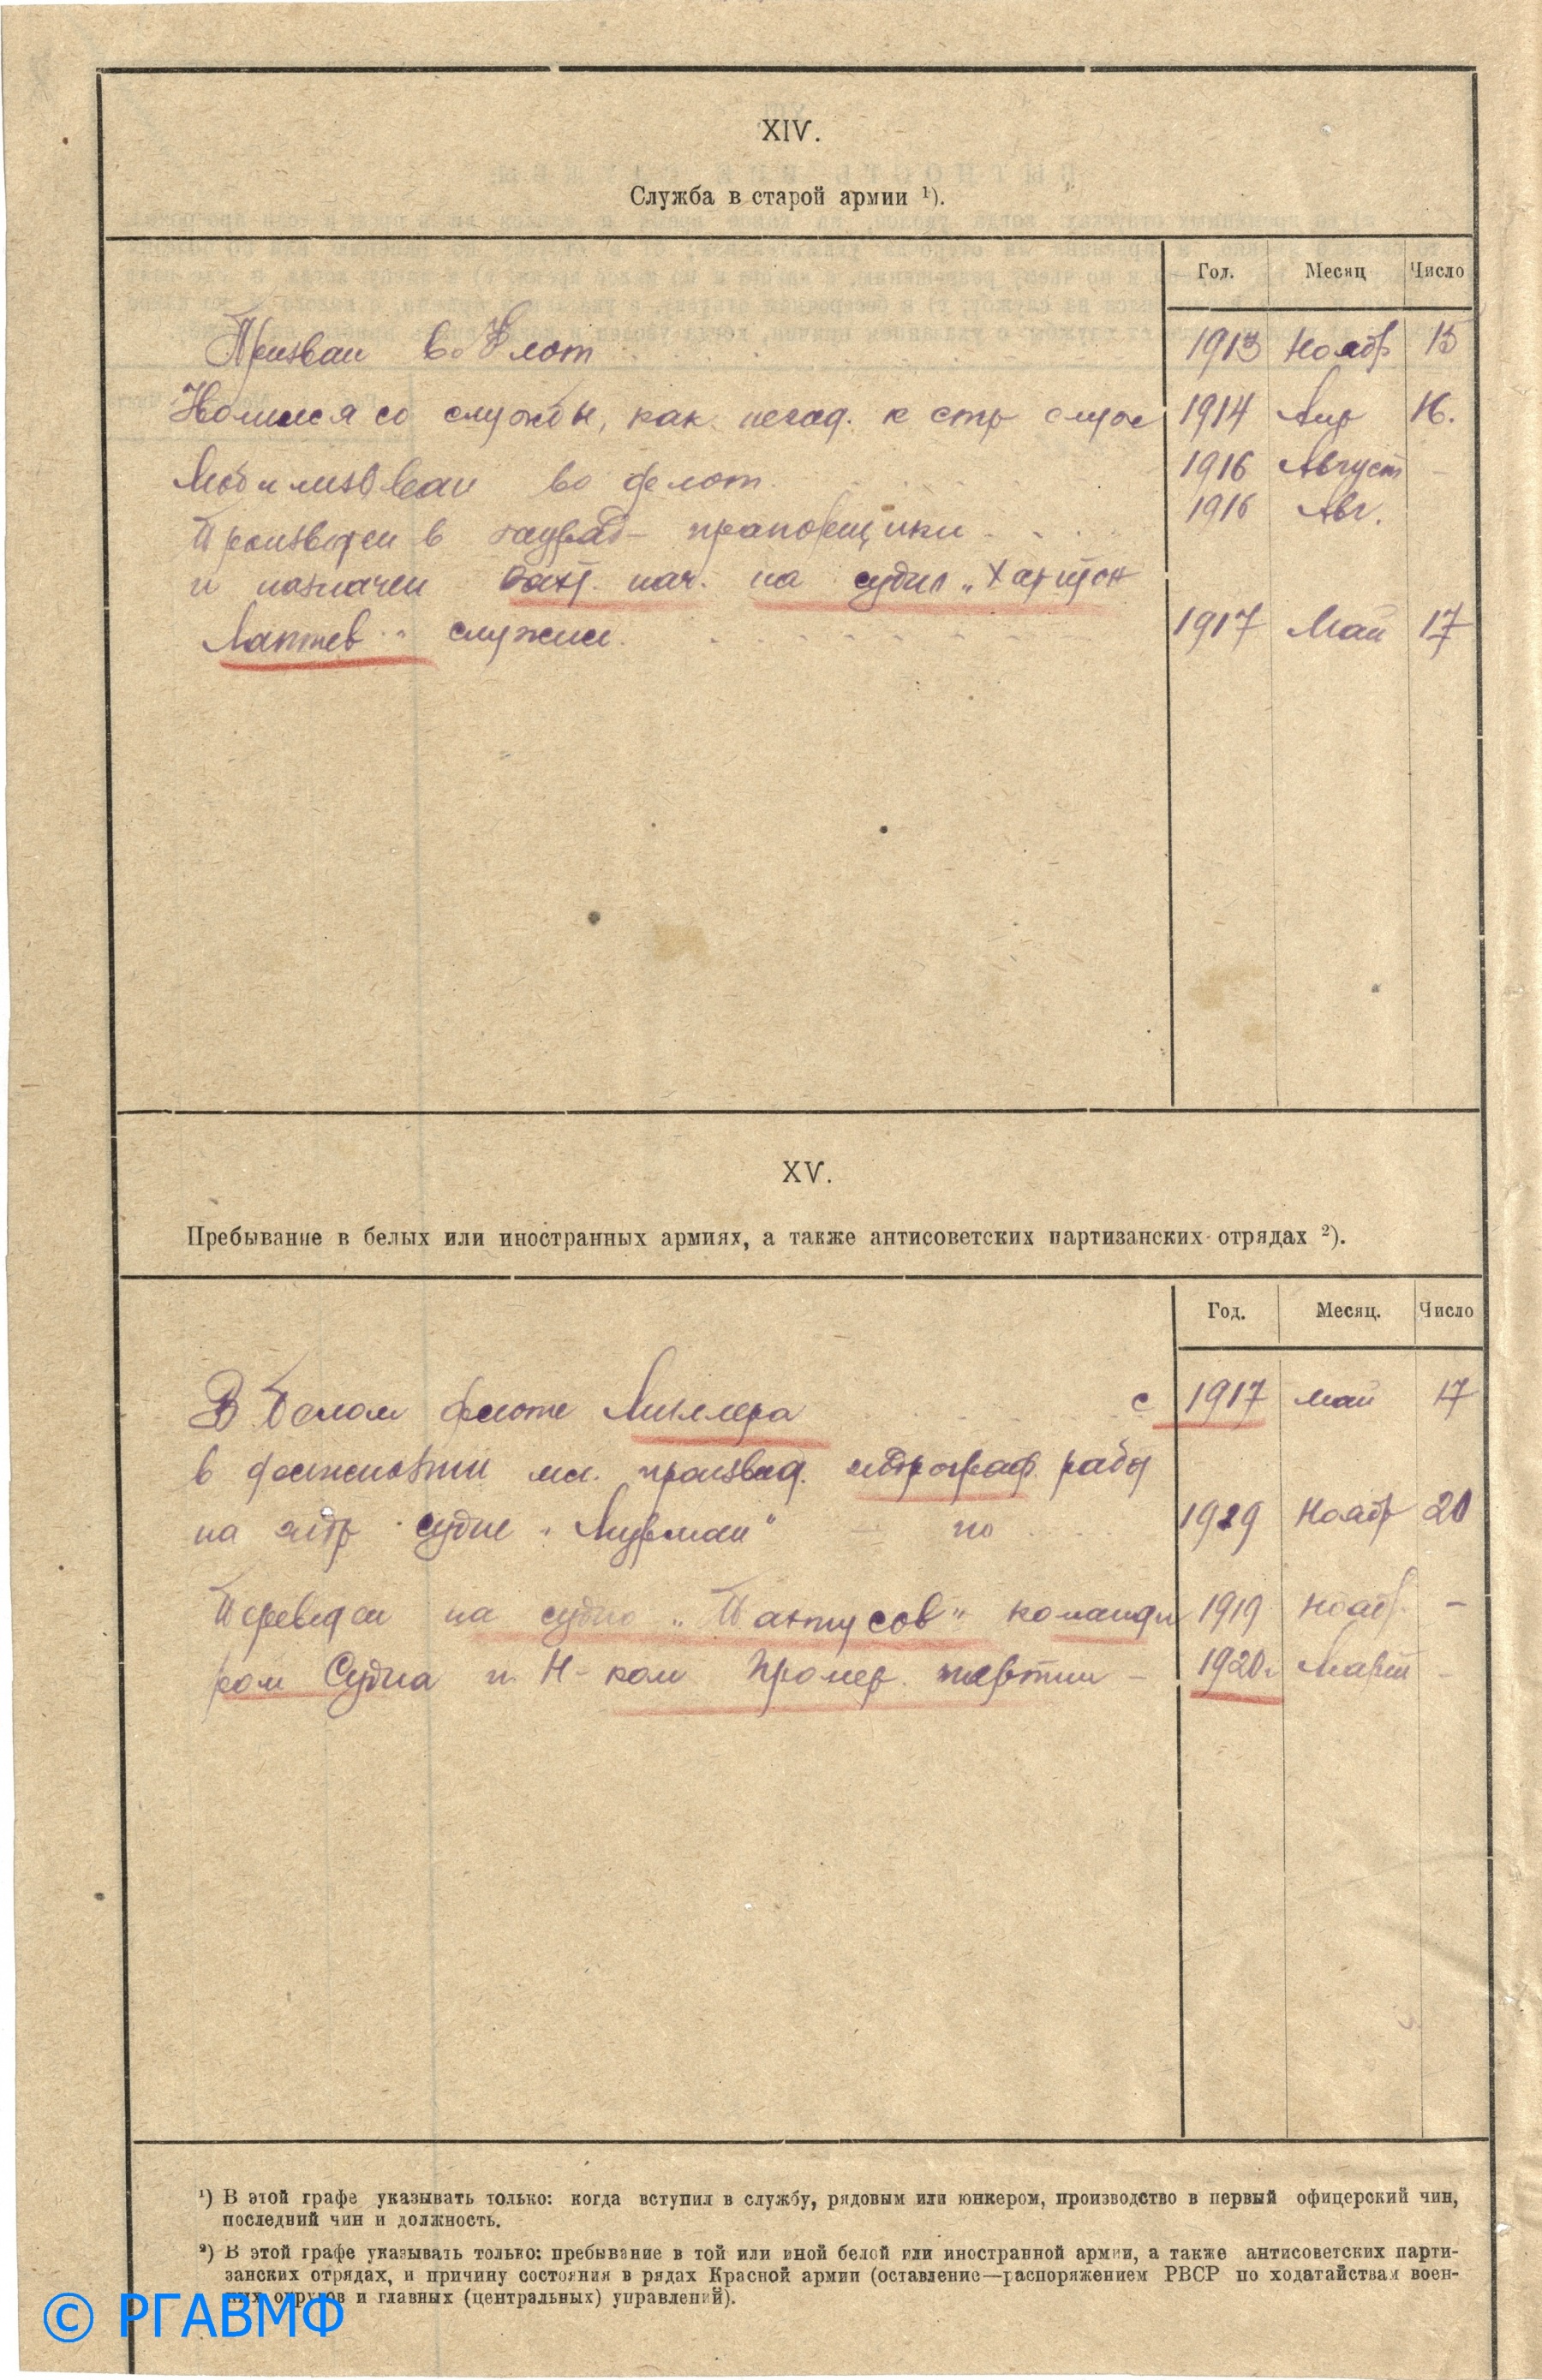 XIV.
Служба в старой армии ¹).
Год. Месяц Число
Призван во Флот 1913 Ноябр 15
со службы, как негод. к стр служ 1914 Апр 16.
Мобилизован во флот. 1916 Август -
Произведен в прапорщики 1916 Авг.
и назначен Вахт. нач. на судно „Харитон
Лаптев" служил. 1917 Май 17
XV.
Пребывание в белых или иностранных армиях, а также антисоветских партизанских отрядах ²).
Год. Месяц. Число
В Белом флоте Миллера с 1917 май 17
в должности мл. производ. гидрограф. работ
на гидр судне „Мурман" — по 1919 Ноябр 20
Переведен на судно „Пахтусов" команди 1919 Ноябр. -
ром Судна и Н-ком Промер. партии - 1920г Март -
¹) В этой графе указывать только: когда вступил в службу, рядовым или юнкером, производство в первый офицерский чин,
последний чин и должность.
²) В этой графе указывать только: пребывание в той или иной белой или иностранной армии, а также антисоветских парти-
занских отрядах, и причину состояния в рядах Красной армии (оставление—распоряжением РВСР по ходатайствам воен-
ных округов и главных (центральных) управлений).
© РГАВМФ